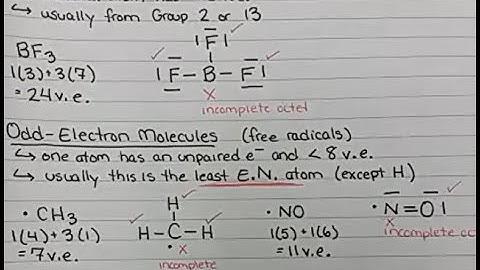 ↳ usually from Group 2 or 13
BF3
1(3)+3(7)
=24v.e.
|F|
|F-B-F|
x
incomplete octet
Odd-Electron Molecules (free radicals)
↳ one atom has an unpaired e⁻ and < 8 v.e.
↳ usually this is the least E.N. atom (except H)
•CH3
1(4)+3(1)
=7v.e.
H
H-C-H
• x
incomplete
•NO
1(5)+1(6)
=11v.e.
•N=O|
x
incomplete oc